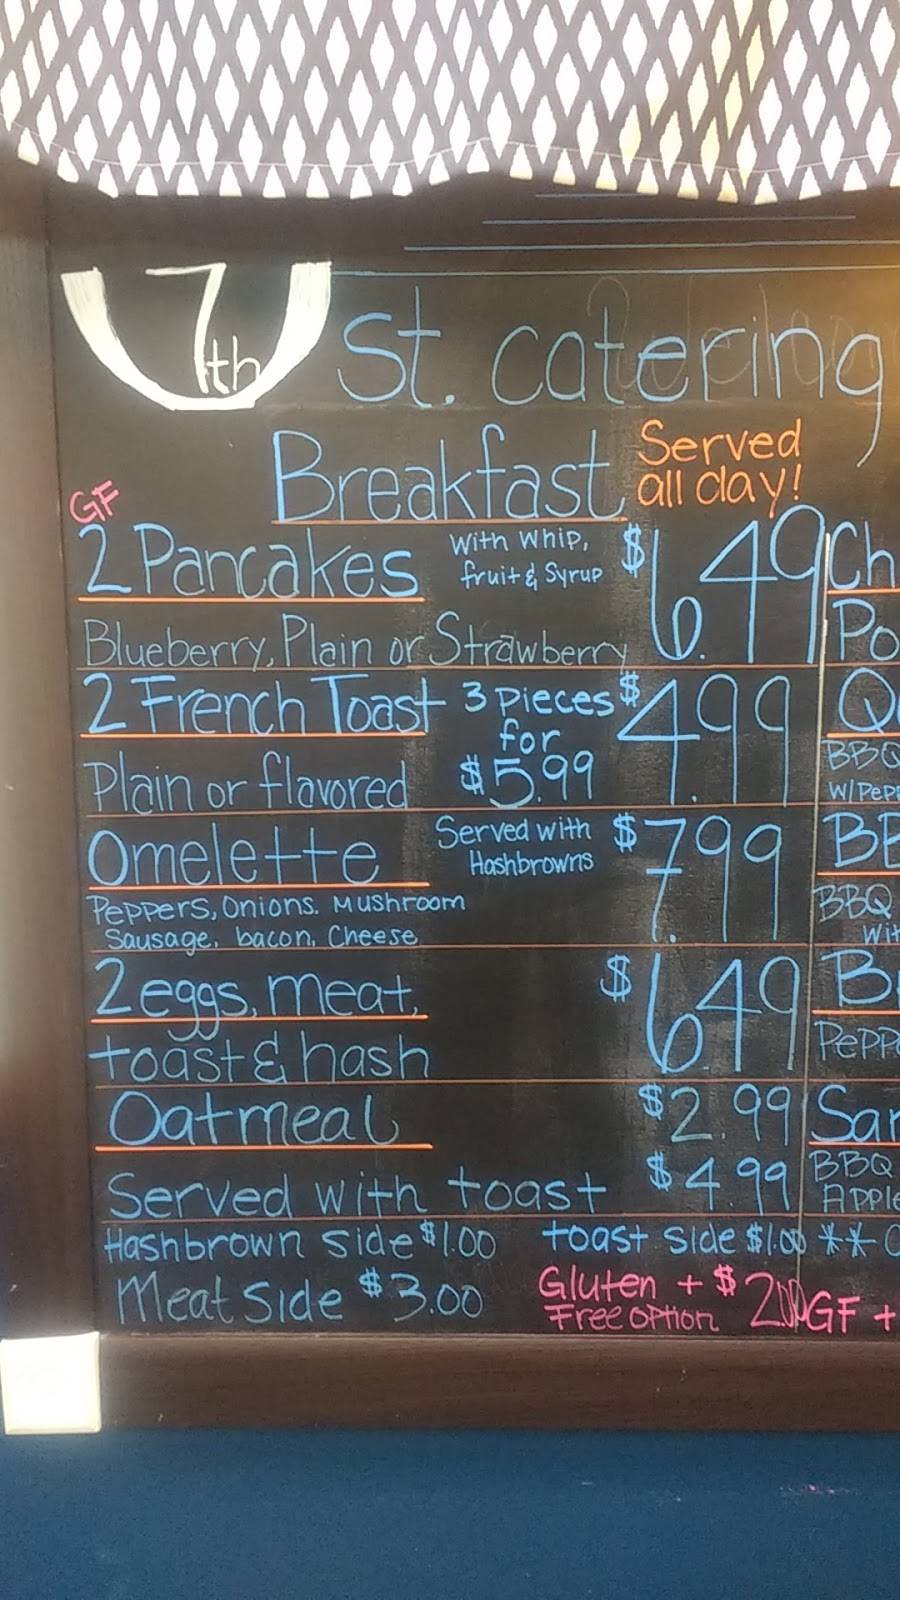 7th St. catering
Breakfast Served all day!
GF
2 Pancakes With Whip, fruit & Syrup $6.49
Blueberry, Plain or Strawberry
2 French Toast 3 Pieces for $5.99 $4.99
Plain or flavored
Omelette Served with Hashbrowns $7.99
Peppers, Onions. Mushroom
Sausage, bacon, Cheese
2 eggs, meat, $6.49
toast & hash
Oatmeal $2.99
Served with toast $4.99
Hashbrown side $1.00 toast side $1.00 **
Meat Side $3.00 Gluten Free Option + $2.00 GF +
Ch
Po
Q
BBQ
W/Pepp
BB
BBQ
Wit
B
Pepp
San
BBQ
Apple